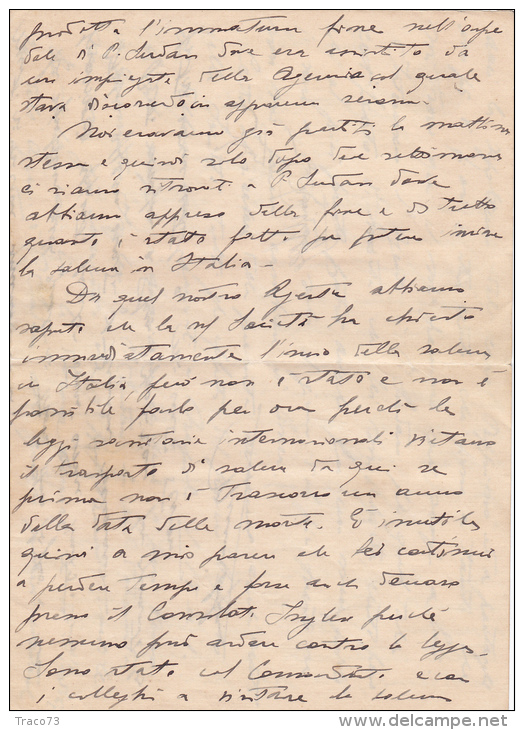 prodotta l'immatura fine nell'ospe
dale di P. Sudan dove era assistito da
un impiegato della Agenzia col quale
stava discorrendo in apparenza
Noi eravamo già partiti la mattina
stessa e quindi solo dopo due settimane
ci siamo ritrovati a P. Sudan dove
abbiamo appreso della fine e di tutto
quanto è stato fatto per potere inviare
la salma in Italia -
Da quel nostro Agente abbiamo
saputo che la ns/ Società ha chiesto
immediatamente l'invio della salma
in Italia, però non è stato e non è
possibile farlo per ora perché le
leggi sanitarie internazionali vietano
il trasporto di salma da qui se
prima non è trascorso un anno
dalla data della morte. È inutile
quindi a mio parere che Lei continui
a perdere tempo e forse anche denaro
presso il Consolato Inglese perché
nessuno può andare contro la legge.
Sono stato col Comandante e con
i colleghi a visitare la salma
Traco73